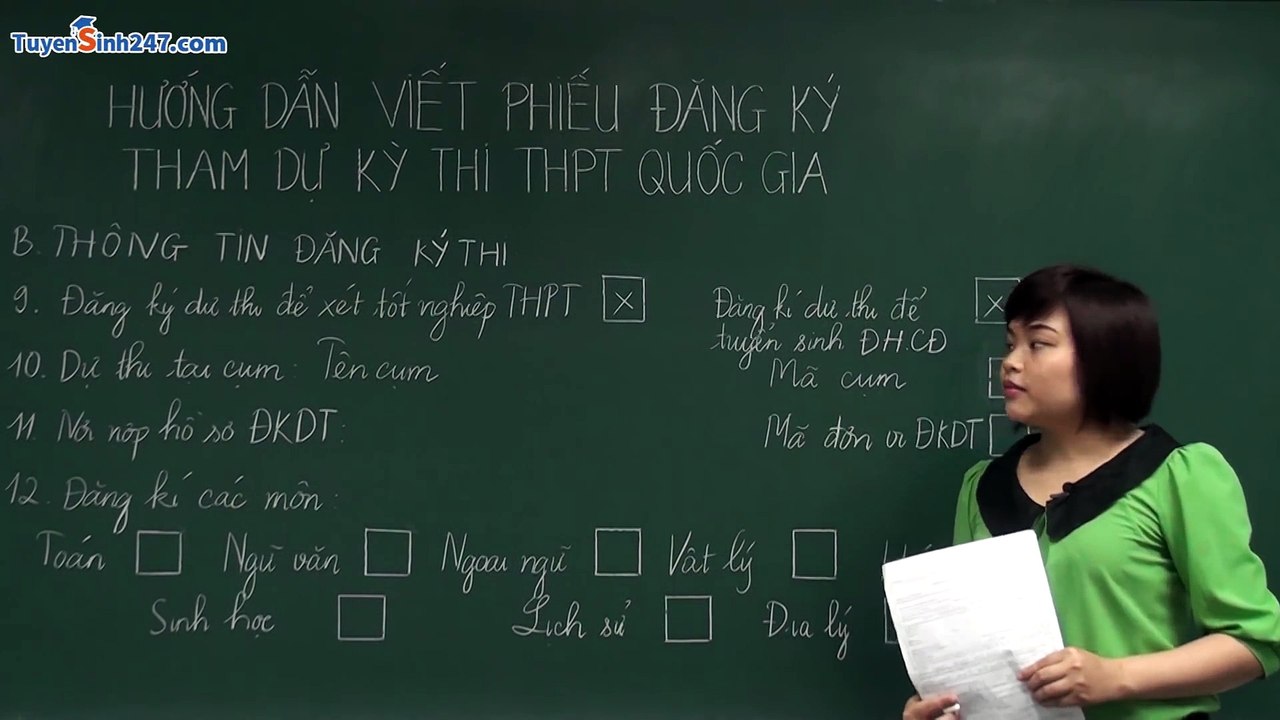 TuyenSinh247.com
HƯỚNG DẪN VIẾT PHIẾU ĐĂNG KÝ
THAM DỰ KỲ THI THPT QUỐC GIA
B. THÔNG TIN ĐĂNG KÝ THI
9. Đăng ký dự thi để xét tốt nghiệp THPT x
Đăng kí dự thi để x
tuyển sinh ĐH.CĐ
10. Dự thi tại cụm: Tên cụm
Mã cụm
11. Nơi nộp hồ sơ ĐKDT:
Mã đơn vị ĐKDT
12. Đăng kí các môn:
Toán Ngữ văn Ngoại ngữ Vật lý
Sinh học Lịch sử Địa lý